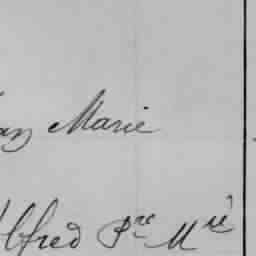 Marie
Alfred Pre Mie